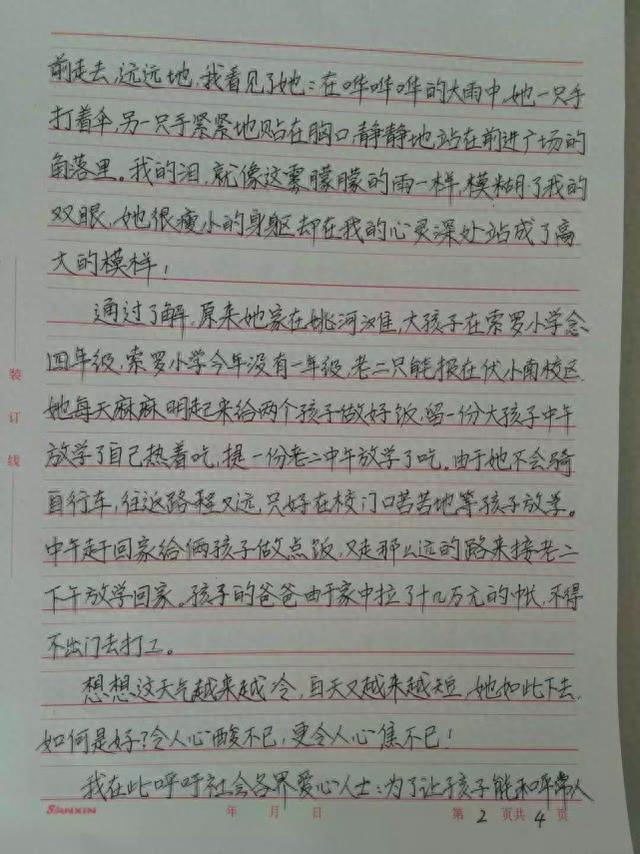 前走去,远远地,我看见了她:在哗哗哗的大雨中,她一只手
打着伞,另一只手紧紧地贴在胸口,静静地站在前进广场的
角落里。我的泪,就像这雾朦朦的雨一样,模糊了我的
双眼,她很瘦小的身躯却在我的心灵深处站成了高
大的模样!
通过了解,原来她家在姚河滩,大孩子在索罗小学念
四年级,索罗小学今年没有一年级,老二只能报在伏小南校区.
她每天麻麻明起来给两个孩子做好饭,留一份大孩子中午
放学了自己热着吃,提一份老二中午放学了吃。由于她不会骑
自行车,往返路程又远,只好在校门口苦苦地等孩子放学。
中午赶回家给俩孩子做点饭,又走那么远的路来接老二
下午放学回家。孩子的爸爸由于家中拉了十几万元的帐,不得
不出门去打工。
想想这天气越来越冷,白天又越来越短,她如此下去,
如何是好?令人心酸不已,更令人心焦不已!
我在此呼吁社会各界爱心人士:为了让孩子能和正常人
装订线
SANXIN 年 月 日 第 2 页共 4 页